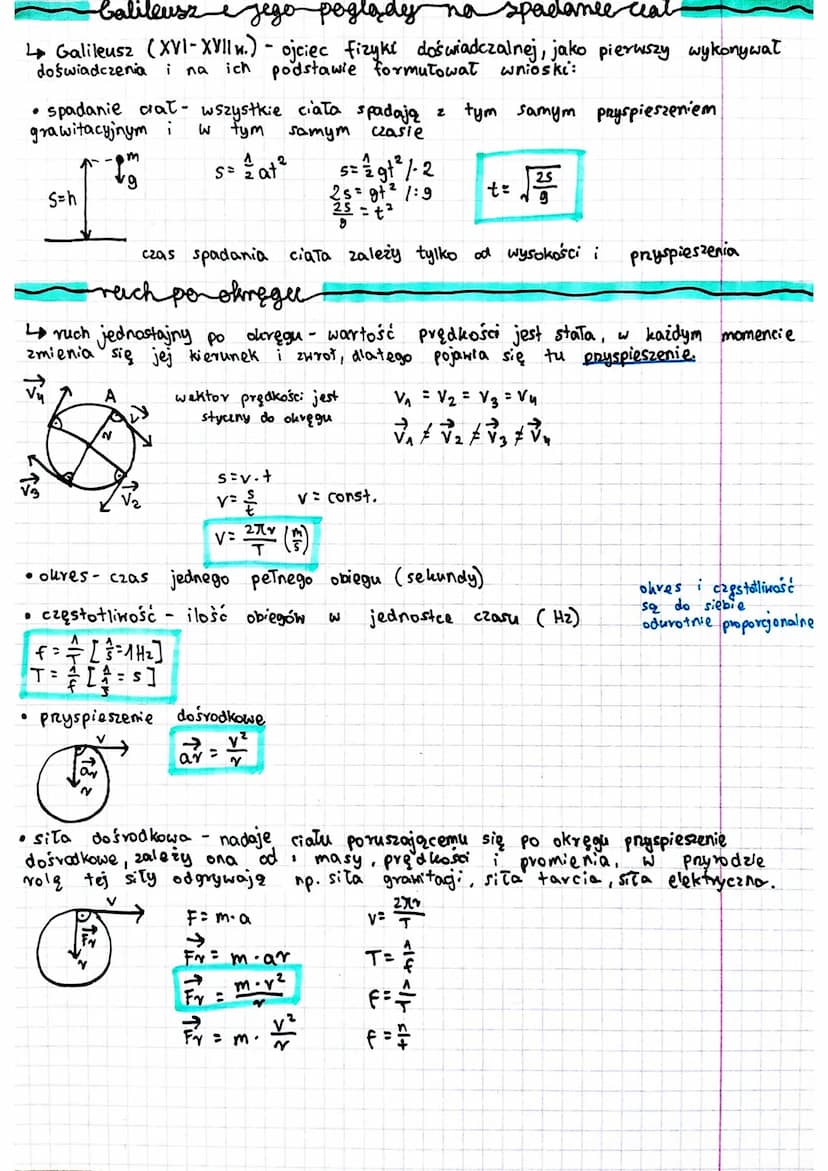 Galileusz i jego poglądy na spadanie ciał
↳ Galileusz (XVI-XVII w.) - ojciec fizyki doświadczalnej, jako pierwszy wykonywał
doświadczenia i na ich podstawie formułował wnioski:
• spadanie ciał - wszystkie ciała spadają z tym samym przyspieszeniem
grawitacyjnym i w tym samym czasie
m
g
s=h
s = 1/2 at²
s = 1/2 gt² /·2
2s = gt² /:g
2s/g = t²
t = √(2s/g)
czas spadania ciała zależy tylko od wysokości i przyspieszenia
ruch po okręgu
↳ ruch jednostajny po okręgu - wartość prędkości jest stała, w każdym momencie
zmienia się jej kierunek i zwrot, dlatego pojawia się tu przyspieszenie.
v⃗₄ A v⃗ r v⃗₃ v⃗₂
wektor prędkości jest
styczny do okręgu
v₁ = v₂ = v₃ = v₄
v⃗₁ ≠ v⃗₂ ≠ v⃗₃ ≠ v⃗₄
s = v·t
v = s/t v = const.
v = 2πr/T (m/s)
• okres - czas jednego pełnego obiegu (sekundy)
• częstotliwość - ilość obiegów w jednostce czasu (Hz)
okres i częstotliwość
są do siebie
odwrotnie proporcjonalne
f = 1/T [1/s = 1Hz]
T = 1/f [1/(1/s) = s]
• przyspieszenie dośrodkowe
v a⃗r r
a⃗r = v²/r
• siła dośrodkowa - nadaje ciału poruszającemu się po okręgu przyspieszenie
dośrodkowe, zależy ona od: masy, prędkości i promienia. W przyrodzie
rolę tej siły odgrywają np. siła grawitacji, siła tarcia, siła elektryczna.
v F⃗r r
F = m·a
F⃗r = m·ar
F⃗r = m·v²/r
F⃗r = m · v²/r
v = 2πr/T
T = 1/f
f = 1/T
f = n/t